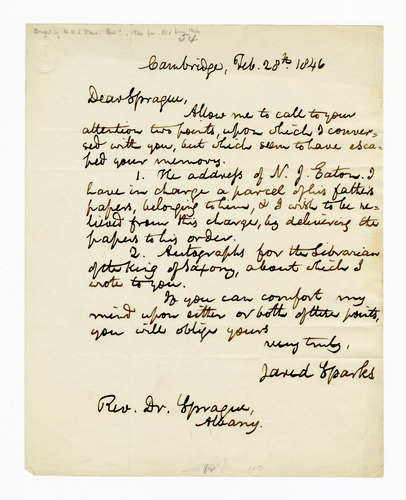 54
Cambridge, Feb. 28th 1846
Dear Sprague,
Allow me to call to your
attention two points, upon which I conver-
sed with you, but which seem to have esca-
ped your memory.
1. The address of N. J. Eaton. I
have in charge a parcel of his father's
papers, belonging to him, & I wish to be re-
lieved from this charge, by delivering the
papers to his order.
2. Autographs for the Librarian
of the King of Saxony, about which I
wrote to you.
If you can comfort my
mind upon either or both of these points,
you will oblige yours
very truly,
Jared Sparks
Rev. Dr. Sprague,
Albany.